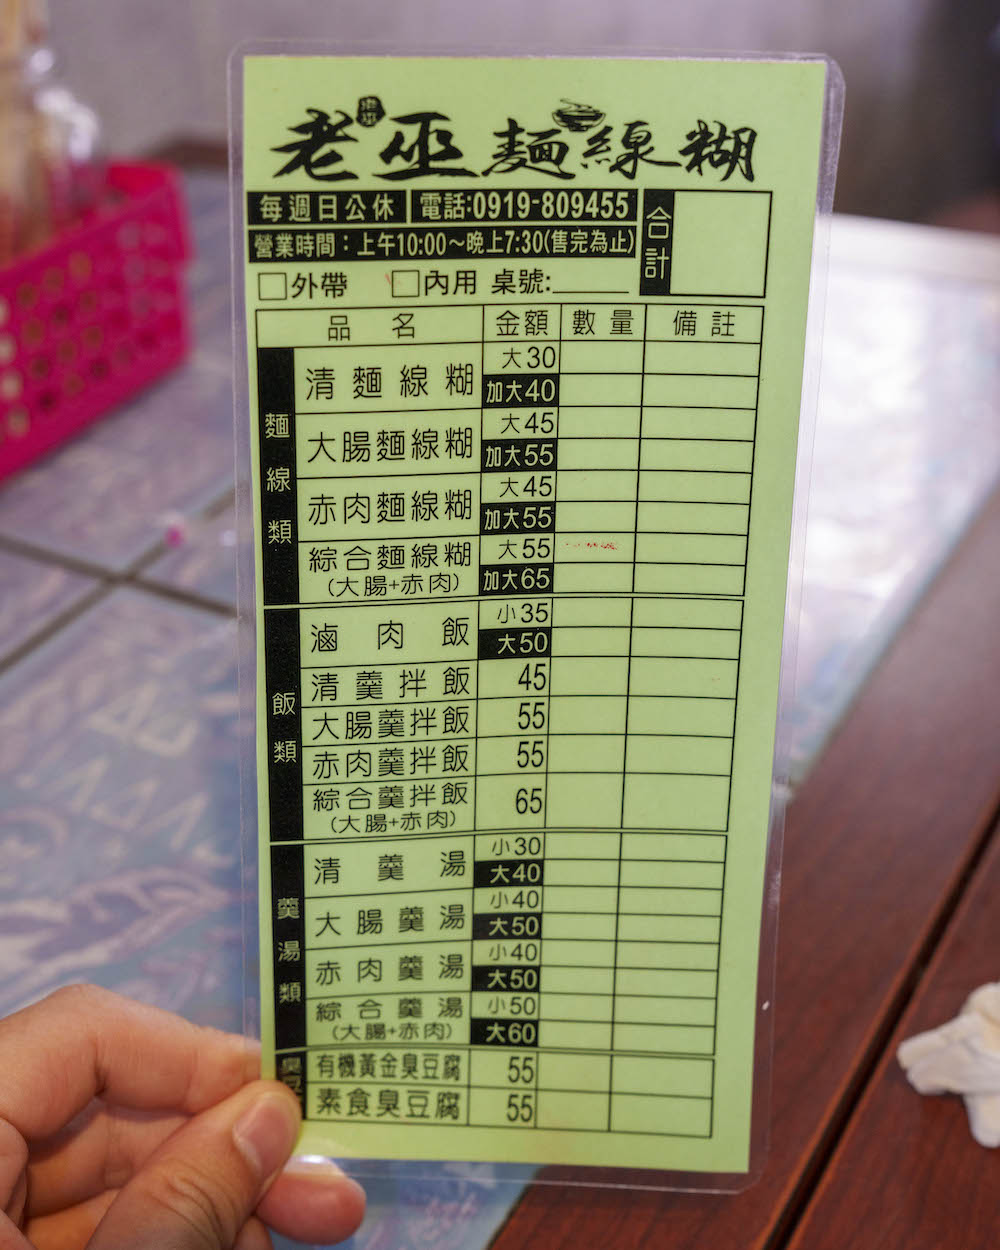 老巫麵線糊
每週日公休 電話:0919-809455
營業時間：上午10:00～晚上7:30(售完為止)
合計
□外帶 □內用 桌號:______
品名 金額 數量 備註
麵線類
清麵線糊 大30
加大40
大腸麵線糊 大45
加大55
赤肉麵線糊 大45
加大55
綜合麵線糊 大55
(大腸+赤肉) 加大65
飯類
滷肉飯 小35
大50
清羹拌飯 45
大腸羹拌飯 55
赤肉羹拌飯 55
綜合羹拌飯 65
(大腸+赤肉)
羹湯類
清羹湯 小30
大40
大腸羹湯 小40
大50
赤肉羹湯 小40
大50
綜合羹湯 小50
(大腸+赤肉) 大60
臭豆
有機黃金臭豆腐 55
素食臭豆腐 55